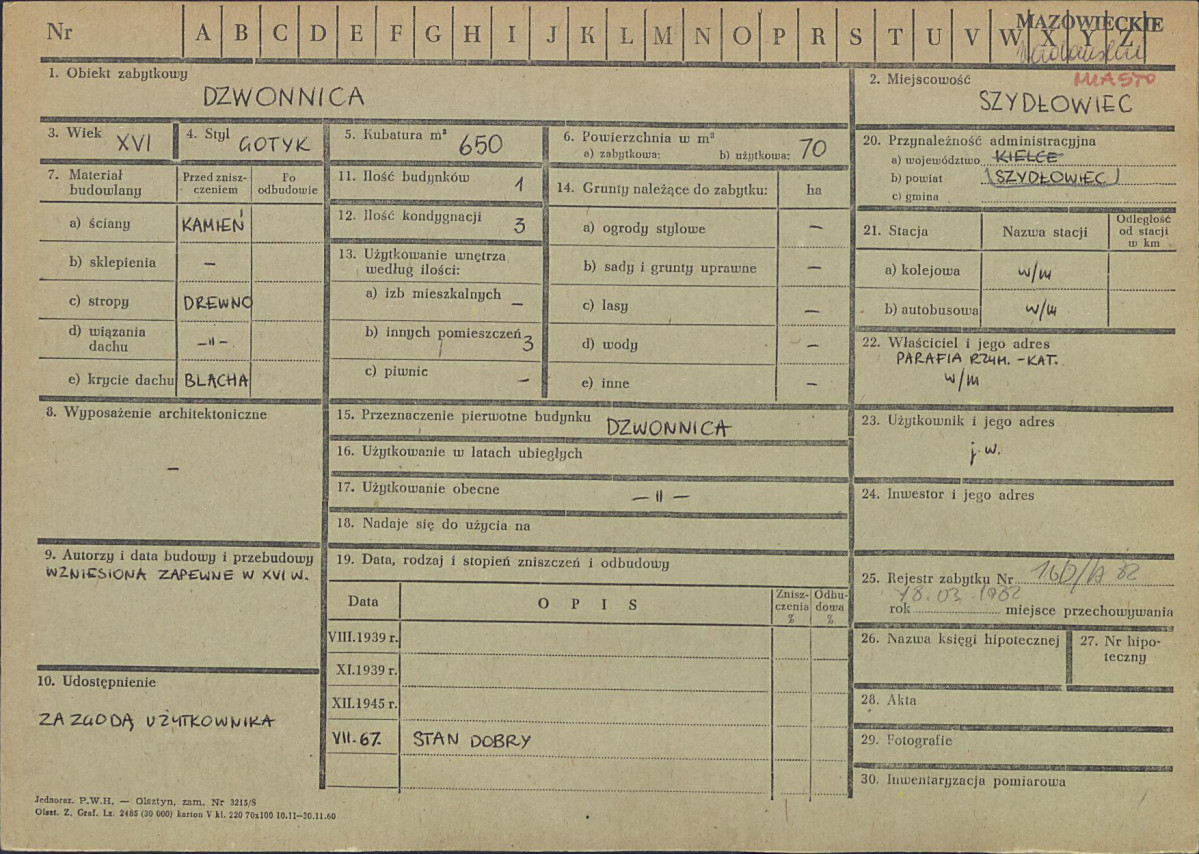 Nr A B C D E F G H I J K L M N O P R S T U V W X Y Z
MAZOWIECKIE
MIASTO
1. Obiekt zabytkowy
DZWONNICA
2. Miejscowość
SZYDŁOWIEC
3. Wiek XVI
4. Styl GOTYK
5. Kubatura m³ 650
6. Powierzchnia w m²
a) zabytkowa: b) użytkowa: 70
7. Materiał budowlany
Przed znisz-
czeniem
Po
odbudowie
a) ściany KAMIEŃ
b) sklepienia –
c) stropy DREWNO
d) wiązania
dachu –"–
e) krycie dachu BLACHA
8. Wyposażenie architektoniczne
–
9. Autorzy i data budowy i przebudowy
WZNIESIONA ZAPEWNE W XVI W.
10. Udostępnienie
ZA ZGODĄ UŻYTKOWNIKA
11. Ilość budynków 1
12. Ilość kondygnacji 3
13. Użytkowanie wnętrza
według ilości:
a) izb mieszkalnych –
b) innych pomieszczeń 3
c) piwnic –
14. Grunty należące do zabytku: ha
a) ogrody stylowe –
b) sady i grunty uprawne –
c) lasy –
d) wody –
e) inne –
15. Przeznaczenie pierwotne budynku DZWONNICA
16. Użytkowanie w latach ubiegłych
17. Użytkowanie obecne –"–
18. Nadaje się do użycia na
19. Data, rodzaj i stopień zniszczeń i odbudowy
Data OPIS Znisz-
czenia
% Odbu-
dowa
%
VIII.1939 r.
XI.1939 r.
XII.1945 r.
VII.67. STAN DOBRY
20. Przynależność administracyjna
a) województwo KIELCE
b) powiat (SZYDŁOWIEC)
c) gmina
21. Stacja Nazwa stacji Odległość
od stacji
w km
a) kolejowa w/m
b) autobusowa w/m
22. Właściciel i jego adres
PARAFIA RZYM.-KAT.
w/m
23. Użytkownik i jego adres
j.w.
24. Inwestor i jego adres
25. Rejestr zabytku Nr 160/A/82
18.03.1982
rok miejsce przechowywania
26. Nazwa księgi hipotecznej
27. Nr hipo-
teczny
28. Akta
29. Fotografie
30. Inwentaryzacja pomiarowa
Jednoraz. P.W.H. — Olsztyn, zam. Nr 3215/S
Olszt. Z. Graf. Lz. 2485 (30 000) karton V kl. 220 70x100 10.11—30.11.60